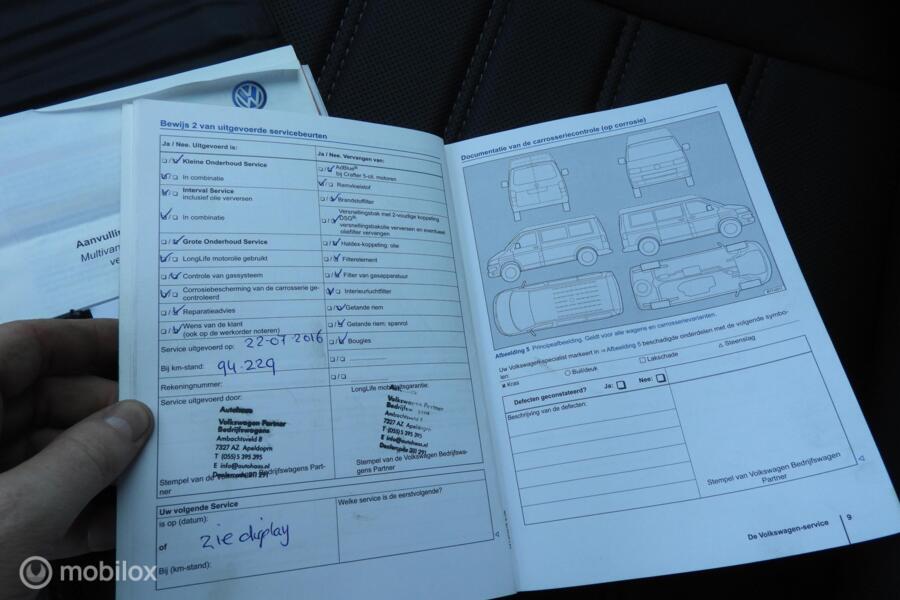 Aanvullin
Multivan
ve
Bewijs 2 van uitgevoerde servicebeurten
Ja / Nee. Uitgevoerd is:
Kleine Onderhoud Service
In combinatie
Interval Service
inclusief olie verversen
In combinatie
Grote Onderhoud Service
LongLife motorolie gebruikt
Controle van gassysteem
Corrosiebescherming van de carrosserie ge-
controleerd
Reparatieadvies
Wens van de klant
(ook op de werkorder noteren)
Service uitgevoerd op: 22-07-2016
Bij km-stand: 94.229
Rekeningnummer:
Service uitgevoerd door:
Autohaas
Volkswagen Partner
Bedrijfswagens
Ambachtsveld 8
7327 AZ Apeldoorn
T (055) 5 395 395
E info@autohaas.nl
Dealercode 211 291
Stempel van de Volkswagen Bedrijfswagens Part-
ner
Ja / Nee. Vervangen van:
AdBlue®
bij Crafter 5-cil. motoren
Remvloeistof
Brandstoffilter
Versnellingsbak met 2-voudige koppeling
DSG®:
versnellingsbakolie verversen en eventueel
oliefilter vervangen
Haldex-koppeling: olie
Filterelement
Filter van gasapparatuur
Interieurluchtfilter
Getande riem
Getande riem: spanrol
Bougies
LongLife mobiliteitsgarantie:
Volkswagen Partner
Bedrijfsw
Ambachtsveld
7327 AZ Apeldoorn
T (055) 5 395 395
E info@autohaas.nl
Dealercode 211 291
Stempel van de Volkswagen Bedrijfswa-
gens Partner
Uw volgende Service
is op (datum):
of zie display
Bij (km-stand):
Welke service is de eerstvolgende?
Documentatie van de carrosseriecontrole (op corrosie)
Afbeelding 5 Principeafbeelding. Geldt voor alle wagens en carrosserievarianten.
Uw Volkswagenspecialist markeert in ⇒ Afbeelding 5 beschadigde onderdelen met de volgende symbo-
len:
Kras
Buil/deuk
Lakschade
Steenslag
Defecten geconstateerd? Ja: Nee:
Beschrijving van de defecten:
Stempel van Volkswagen Bedrijfswagen
Partner
De Volkswagen-service 9
mobilox